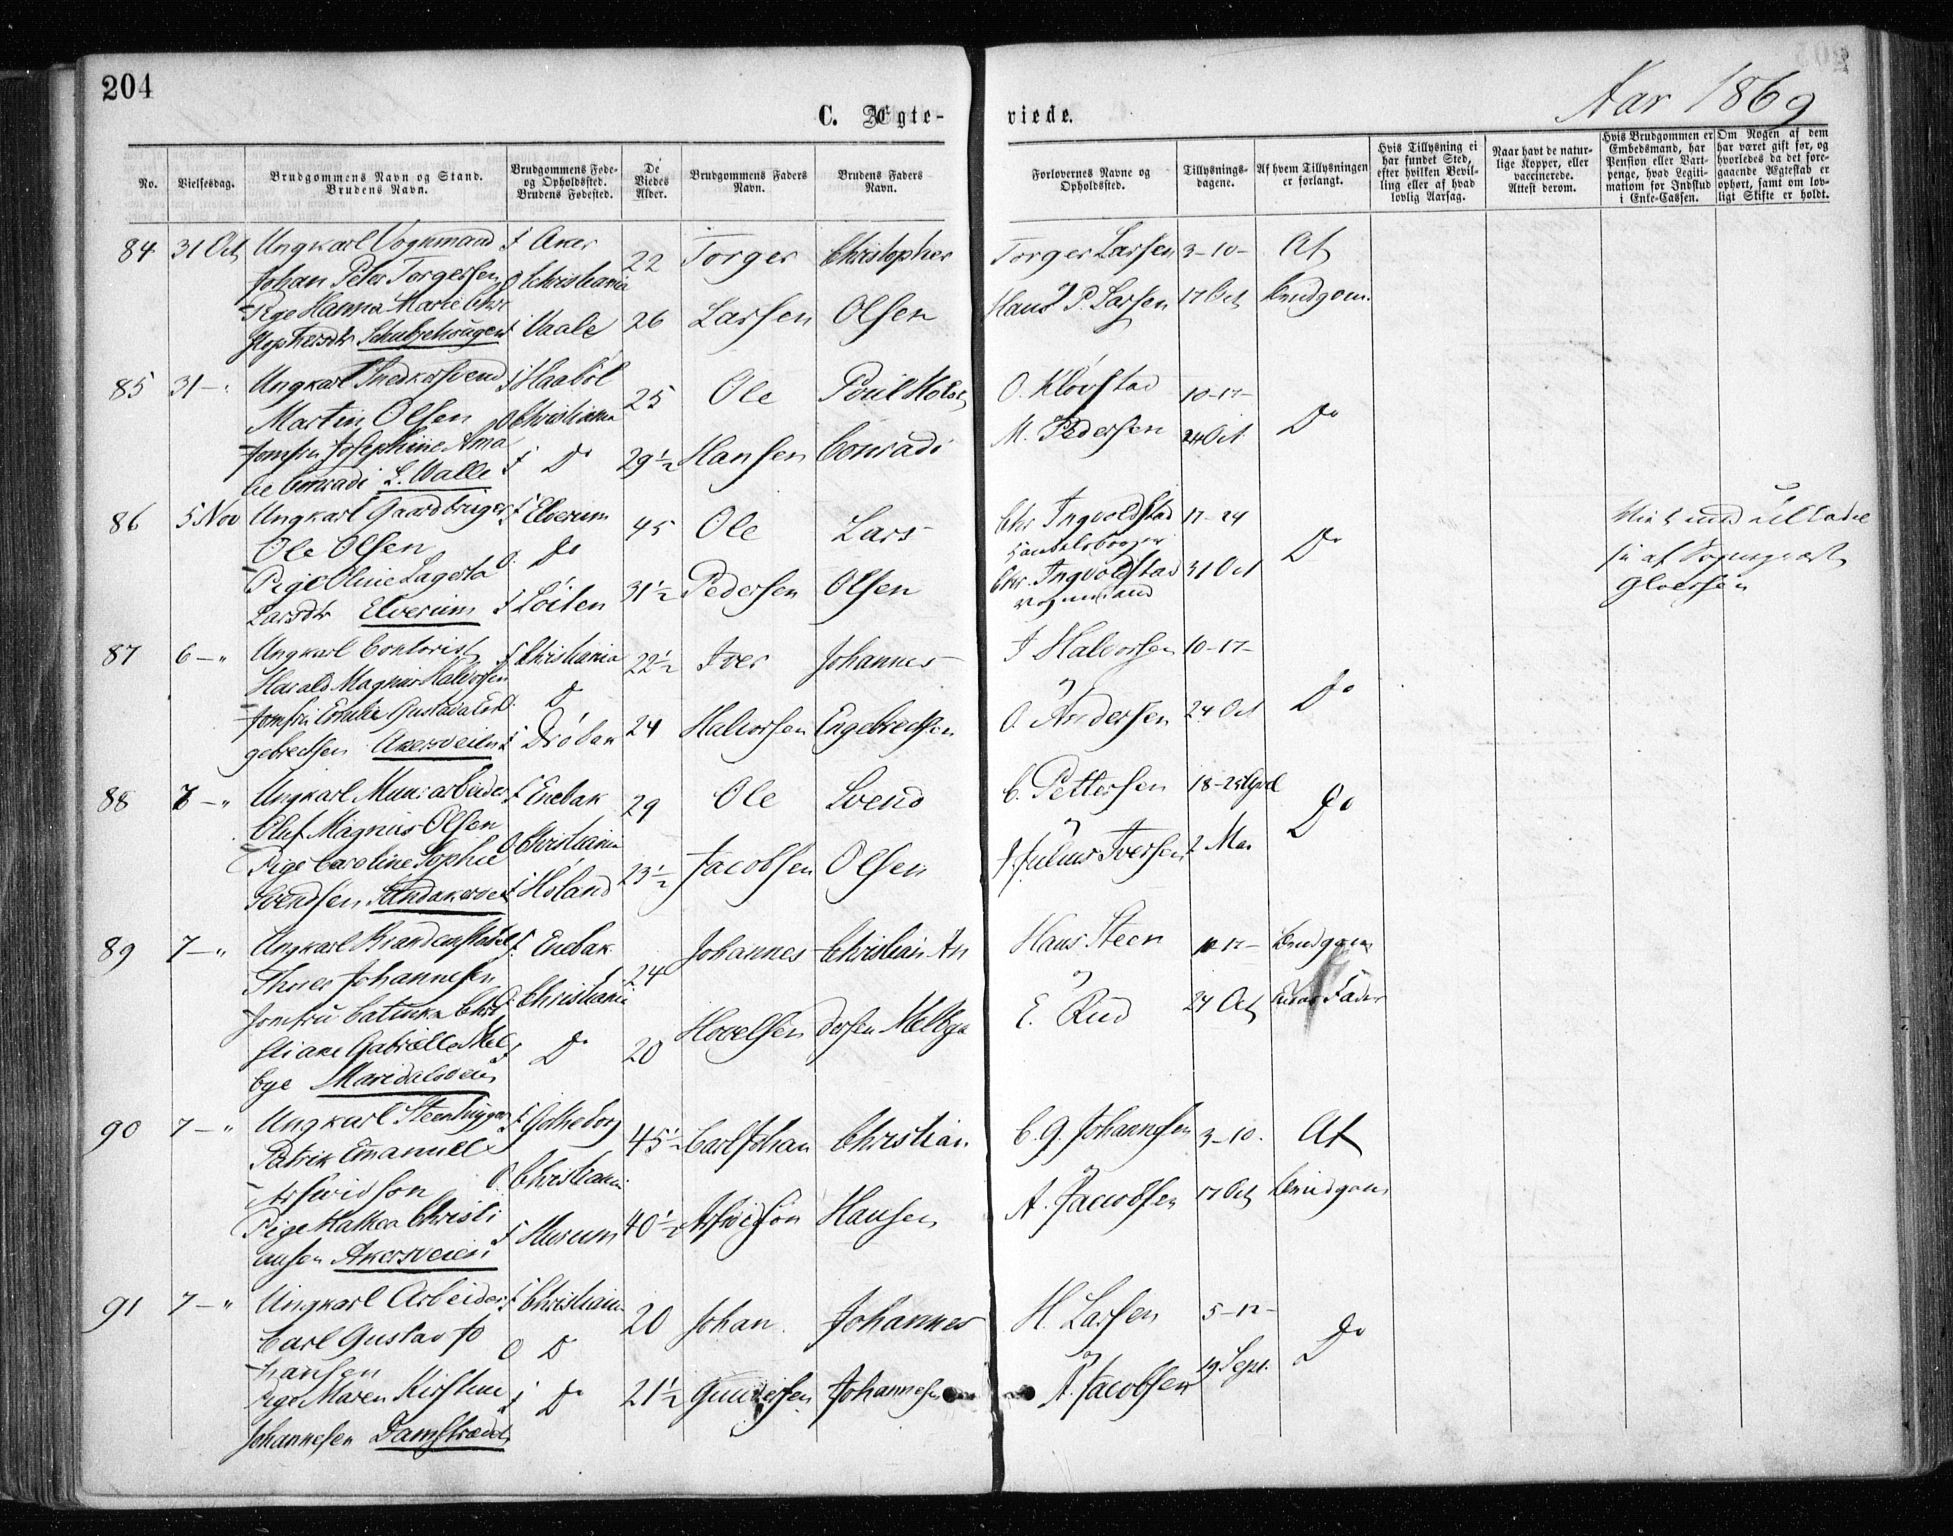 204
C. Ægte-
viede.
Aar 1869
No.
Vielsesdag.
Brudgommens Navn og Stand.
Brudens Navn.
Brudgommens Fødе-
og Opholdssted.
Brudens Fødested.
De
Viedes
Alder.
Brudgommens Faders
Navn.
Brudens Faders
Navn.
Forlovernes Navne og
Opholdssted.
Tillysnings-
dagene.
Af hvem Tillysningen
er forlangt.
Hvis Tillysning ei
har fundet Sted,
efter hvilken Bevil-
ling eller af hvad
lovlig Aarsag.
Naar havt de natur-
lige Kopper, eller
vaccinerede.
Attest derom.
Hvis Brudgommen er
Embedsmand, har
Pension eller Vart-
penge, hvad Legiti-
mation for Indskud
i Enke-Cassen.
Om Nogen af dem
har været gift før, og
hvorledes da det fore-
gaaende Ægteskab er
ophørt, samt om lov-
ligt Skifte er holdt.
84 31 Oct Ungkarl Vognmand f Aker 22 Torger Christopher Torger Larsen 3-10- Af
Johan Peter Torgersen O Christiania
Pige Hanna Marie Chri 26 Larsen Olsen Hans P. Larsen 17 Oct Brudgom.
stophersdtr Schultzehaugen f Vaale
85 31 - Ungkarl Snedkersvend f Haabøl 25 Ole Poul Holst O. Kløvstad 10-17-
Martin Olsen O Christiania Do
Jomfru Josephine Ama M. Pedersen 24 Oct
lie Conradi L. Valle f Do 29½ Hansen Conradi
86 5 Nov Ungkarl Gaardbruger f Elverum 45 Ole Lars Chr Ingvoldstad 17-24
Ole Olsen O. Do Do
Pige Oline Lagerta 31½ Pedersen Olsen Chr. Ingvoldstad 31 Oct
Larsdtr Elverum f Løiten Vognmand
af Sognepræst
Gløersen
87 6 - " Ungkarl Contorist f Christiania 22½ Iver Johannes I Halvorsen 10-17-
Harald Magnus Halvorsen O. Do Do
Jomfru Emilie Gustava En 24 Halvorsen Engebretsen O. Andersen 24 Oct
gebretsen Akersveien f Drøbak
88 7 - " Ungkarl Murarbeider f Enebak 29 Ole Svend C. Pettersen 18-25 April
Oluf Magnus Olsen O Christiania Do
Pige Caroline Sophie 23½ Jacobsen Olsen J. Julius Iversen 2 Mai
Svendsen Sandakerveien f Høland
89 7 - " Ungkarl f Enebak 24 Johannes Christian An Hans Steen 10-17- Brudgom
Johannesen O Christiania
Jomfru Catinka Chri 20 Howelsen dersen Melbye E. Rud 24 Oct Fader
stiane Gabrielle Mel f Do
bye Maridalsveien
90 7 - " Ungkarl Steenhugger f Gøtheborg 45½ Carl Johan Christian C. G. Johannesen 3-10. Af
Patrik Emanuel
Arfwidson O Christiania
Pige Mathea Christi f 40½ Arfwidson Hansen A. Jacobsen 17 Oct Brudgom
ansen Akersveien
91 7 - " Ungkarl Arbeider f Christiania 20 Johan Johannes H. Larsen 5-12-
Carl Gustav Jo O Do Do
hansen
Pige Maren Kirstine f Do 21½ Gundersen Johannesen A. Jacobsen 19 Sept.
Johannesen Damstrædet